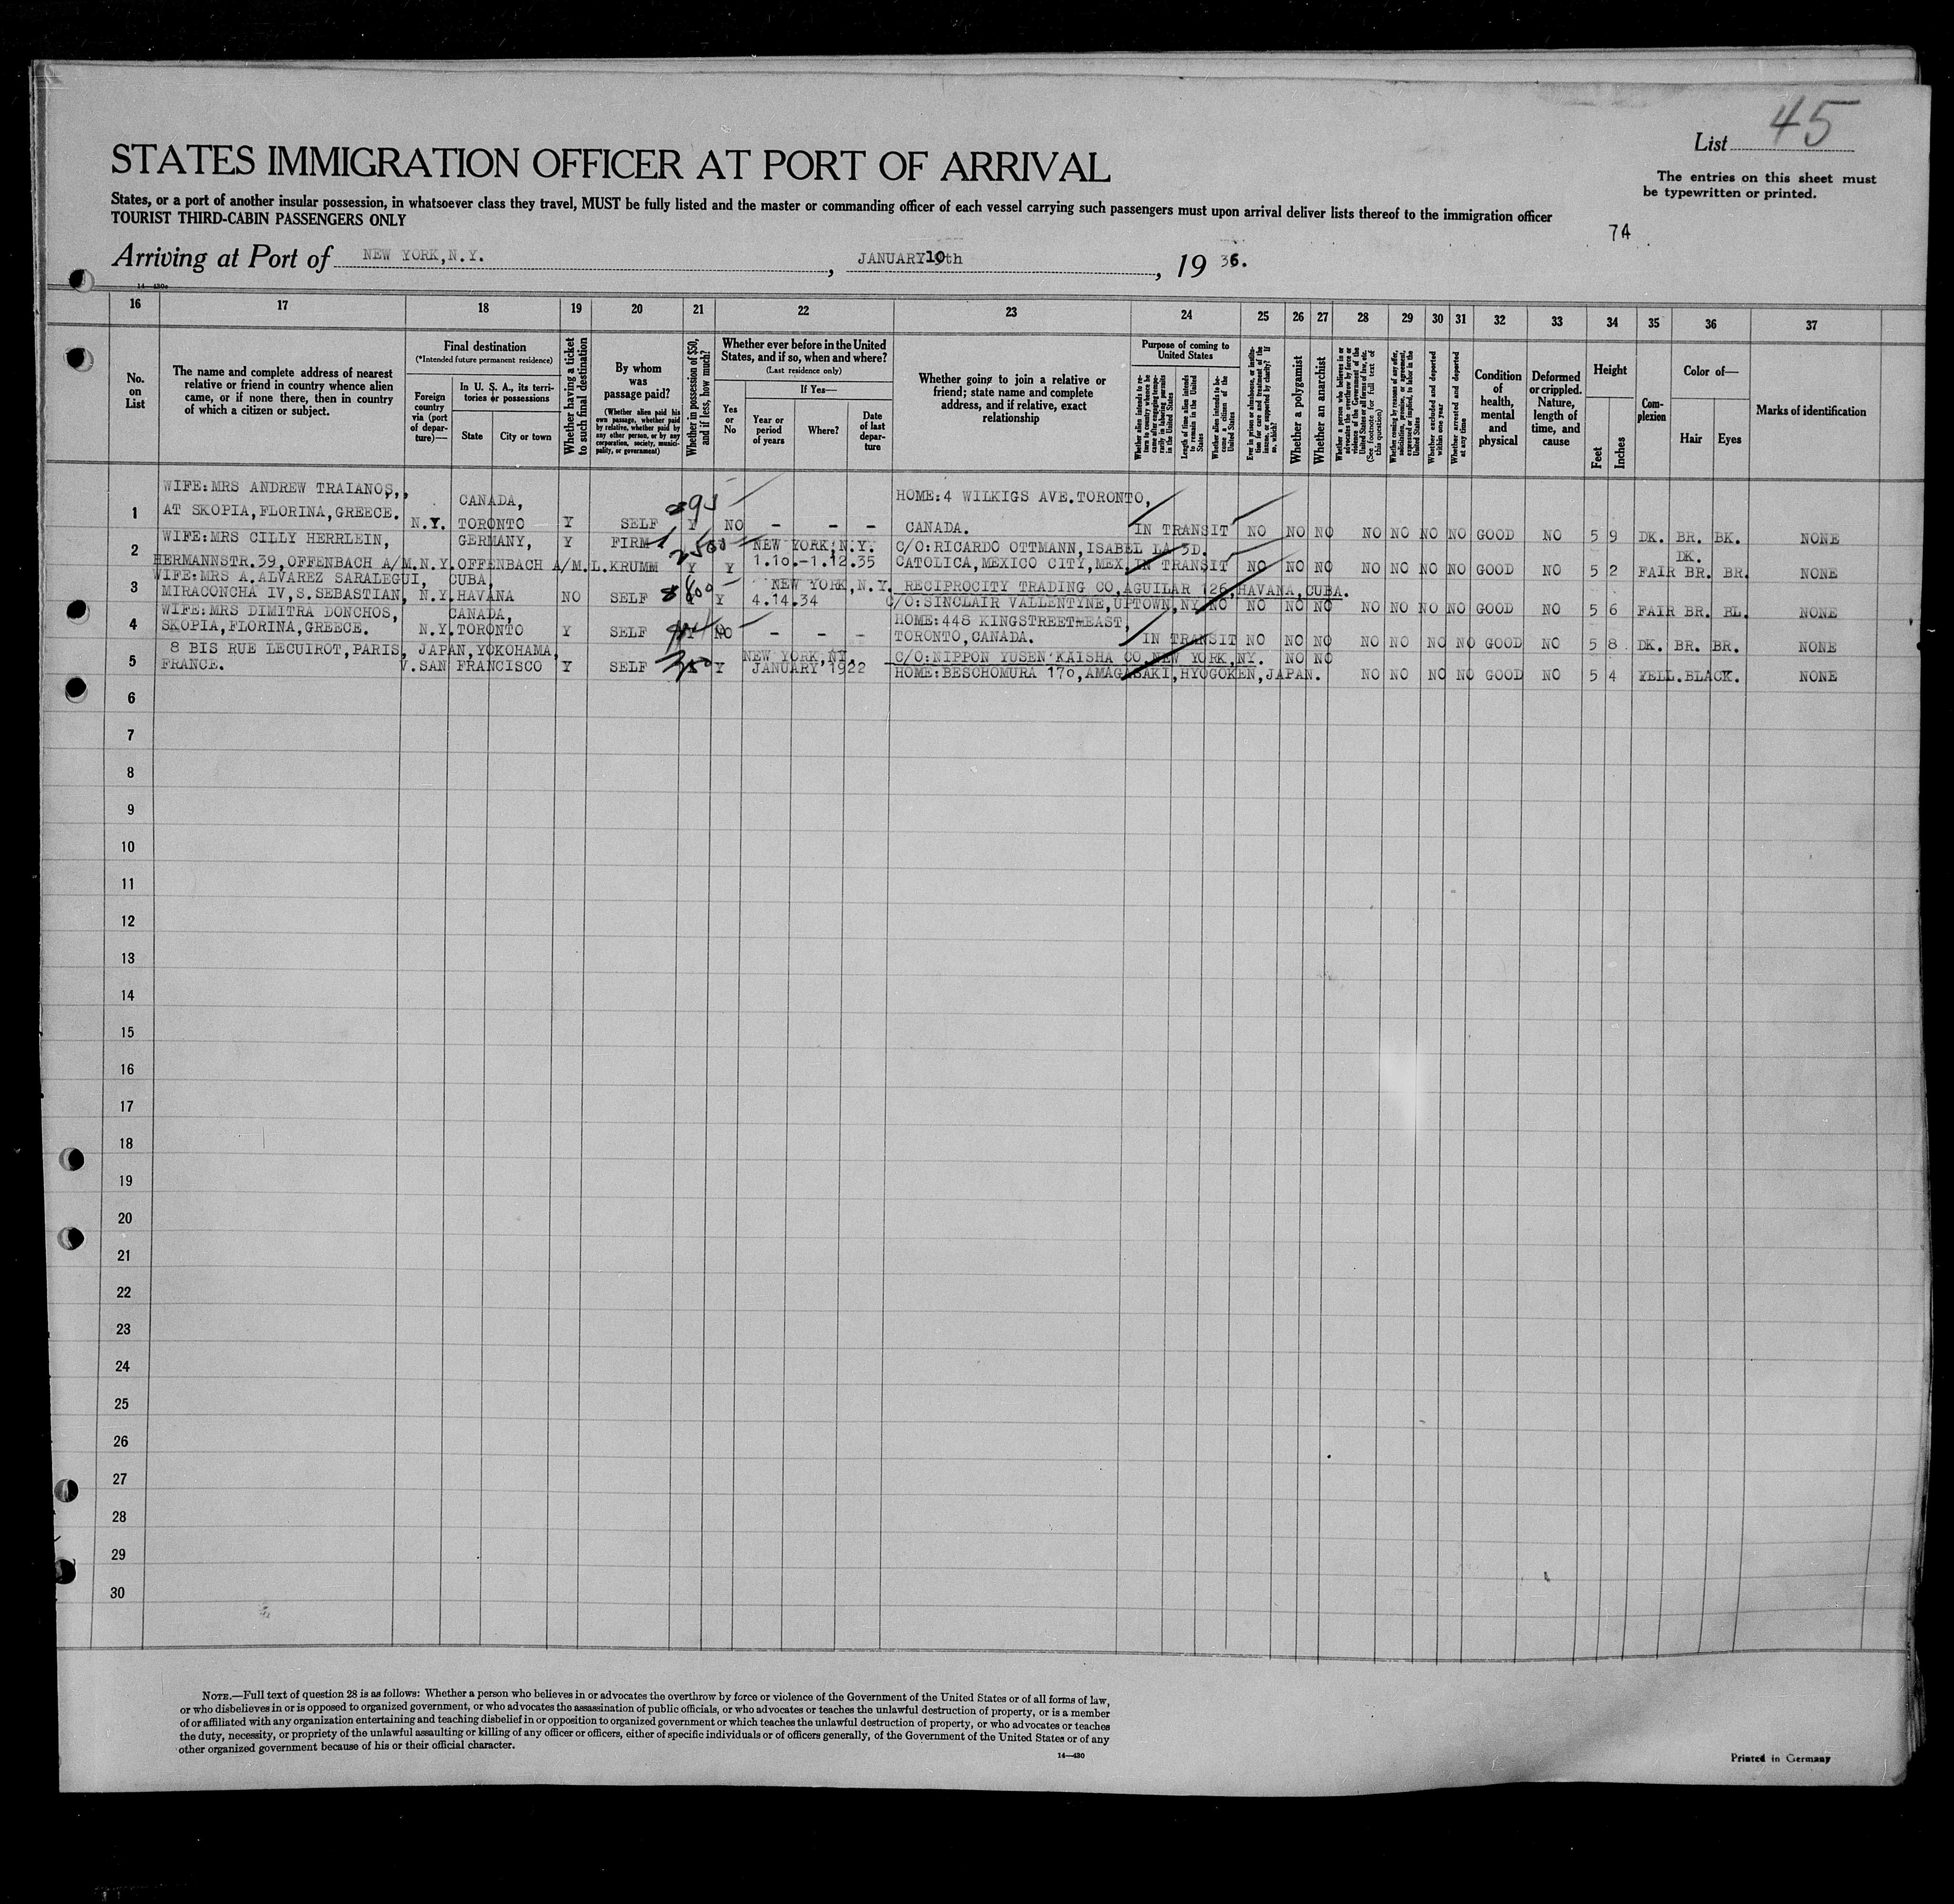 List 45
The entries on this sheet must
be typewritten or printed.
STATES IMMIGRATION OFFICER AT PORT OF ARRIVAL
States, or a port of another insular possession, in whatsoever class they travel, MUST be fully listed and the master or commanding officer of each vessel carrying such passengers must upon arrival deliver lists thereof to the immigration officer
TOURIST THIRD-CABIN PASSENGERS ONLY
74
Arriving at Port of NEW YORK, N.Y. , JANUARY 10th , 19 36.
16 17 18 19 20 21 22 23 24 25 26 27 28 29 30 31 32 33 34 35 36 37
No. on List
The name and complete address of nearest
relative or friend in country whence alien
came, or if none there, then in country
of which a citizen or subject.
Final destination
(*Intended future permanent residence)
Foreign country via (port of departure)—
In U. S. A., its territories or possessions
State
City or town
Whether having a ticket to such final destination
By whom was passage paid?
(Whether alien paid his own passage, whether paid by relative, whether paid by any other person, or by any corporation, society, municipality, or government)
Whether in possession of $50, and if less, how much?
Whether ever before in the United States, and if so, when and where?
(Last residence only)
Yes or No
If Yes—
Year or period of years
Where?
Date of last departure
Whether going to join a relative or
friend; state name and complete
address, and if relative, exact
relationship
Purpose of coming to United States
Length of time alien intends to remain in the United States
Whether alien intends to become a citizen of the United States
Whether a polygamist
Whether an anarchist
Whether excluded and deported within one year
Whether arrested and deported at any time
Condition of health, mental and physical
Deformed or crippled. Nature, length of time, and cause
Height
Feet
Inches
Complexion
Color of—
Hair
Eyes
Marks of identification
1 WIFE:MRS ANDREW TRAIANOS,, CANADA, HOME:4 WILKIGS AVE.TORONTO,
AT SKOPIA,FLORINA,GREECE. N.Y. TORONTO Y SELF Y NO - - - CANADA. IN TRANSIT NO NO NO NO NO NO NO GOOD NO 5 9 DK. BR. BK. NONE
2 WIFE:MRS CILLY HERRLEIN, GERMANY, Y FIRM NEW YORK,N.Y. C/O:RICARDO OTTMANN,ISABEL LA 3D. DK.
HERMANNSTR.39,OFFENBACH A/M.N.Y.OFFENBACH A/M.L.KRUMM Y Y 1.10.-1.12.35 CATOLICA,MEXICO CITY,MEX. IN TRANSIT NO NO NO NO NO NO NO GOOD NO 5 2 FAIR BR. BR. NONE
3 WIFE:MRS A.ALVAREZ SARALEGUI, CUBA, NEW YORK,N.Y. RECIPROCITY TRADING CO,AGUILAR 126,HAVANA,CUBA.
MIRACONCHA IV,S.SEBASTIAN, N.Y.HAVANA NO SELF 800 Y 4.14.34 C/O:SINCLAIR VALLENTYNE,UPTOWN,NY NO NO NO NO NO NO NO NO GOOD NO 5 6 FAIR BR. BL. NONE
4 WIFE:MRS DIMITRA DONCHOS, CANADA, HOME:448 KINGSTREET-EAST,
SKOPIA,FLORINA,GREECE. N.Y.TORONTO Y SELF NO - - - TORONTO,CANADA. IN TRANSIT NO NO NO NO NO NO NO GOOD NO 5 8 DK. BR. BR. NONE
5 8 BIS RUE LECUIROT,PARIS, JAPAN,YOKOHAMA, NEW YORK,NY. C/O:NIPPON YUSEN KAISHA CO.NEW YORK,NY. NO NO
FRANCE. V.SAN FRANCISCO Y SELF 350 Y JANUARY 1922 HOME:BESCHOMURA 170,AMAGASAKI,HYOGOKEN,JAPAN. NO NO NO NO GOOD NO 5 4 YELL.BLACK. NONE
6
7
8
9
10
11
12
13
14
15
16
17
18
19
20
21
22
23
24
25
26
27
28
29
30
NOTE.—Full text of question 28 is as follows: Whether a person who believes in or advocates the overthrow by force or violence of the Government of the United States or of all forms of law,
or who disbelieves in or is opposed to organized government, or who advocates the assassination of public officials, or who advocates or teaches the unlawful destruction of property, or is a member
of or affiliated with any organization entertaining and teaching disbelief in or opposition to organized government or which teaches the unlawful destruction of property, or who advocates or teaches
the duty, necessity, or propriety of the unlawful assaulting or killing of any officer or officers, either of specific individuals or of officers generally, of the Government of the United States or of any
other organized government because of his or their official character.
14—430
Printed in Germany